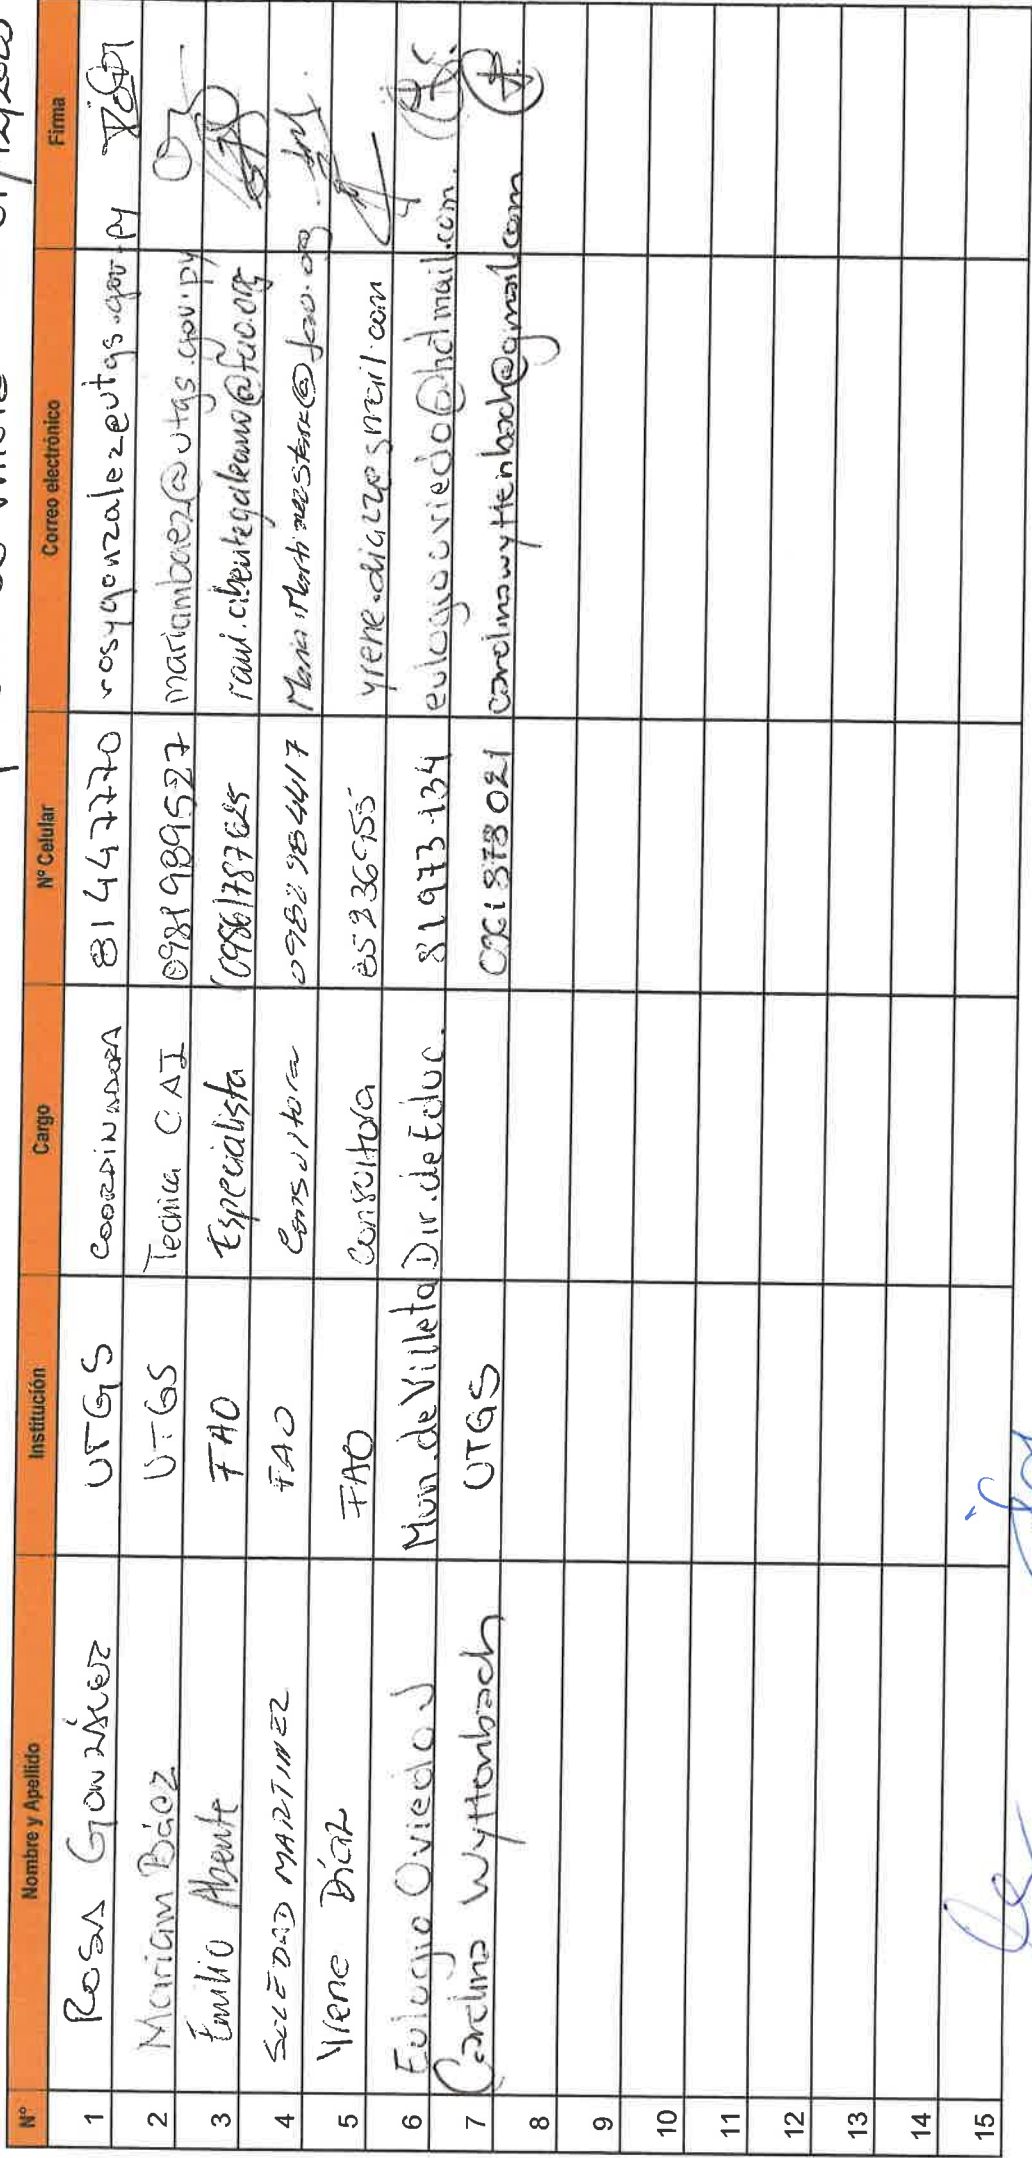 Nº Nombre y Apellido Institución Cargo Nº Celular Correo electrónico Firma
1 ROSA GONZÁLEZ UTGS COORDINADORA 81447770 rosygonzalez@utgs.gov.py
2 Mariam Báez UTGS Tecnica CAI 0981989527 mariambaez@utgs.gov.py
3 Emilio Abente FAO Especialista (0986)787625
4 SOLEDAD MARTINEZ FAO Consultora 0982984417
5 Yrene Díaz FAO Consultora yrene.diazz@gmail.com
6 Eulogio Oviedo J Mun. de Villeta Dir. de Educ. 81973134 eulogiooviedo@hotmail.com.
7 Carolina Wyttenbach UTGS carolinawyttenbach@gmail.com
8
9
10
11
12
13
14
15